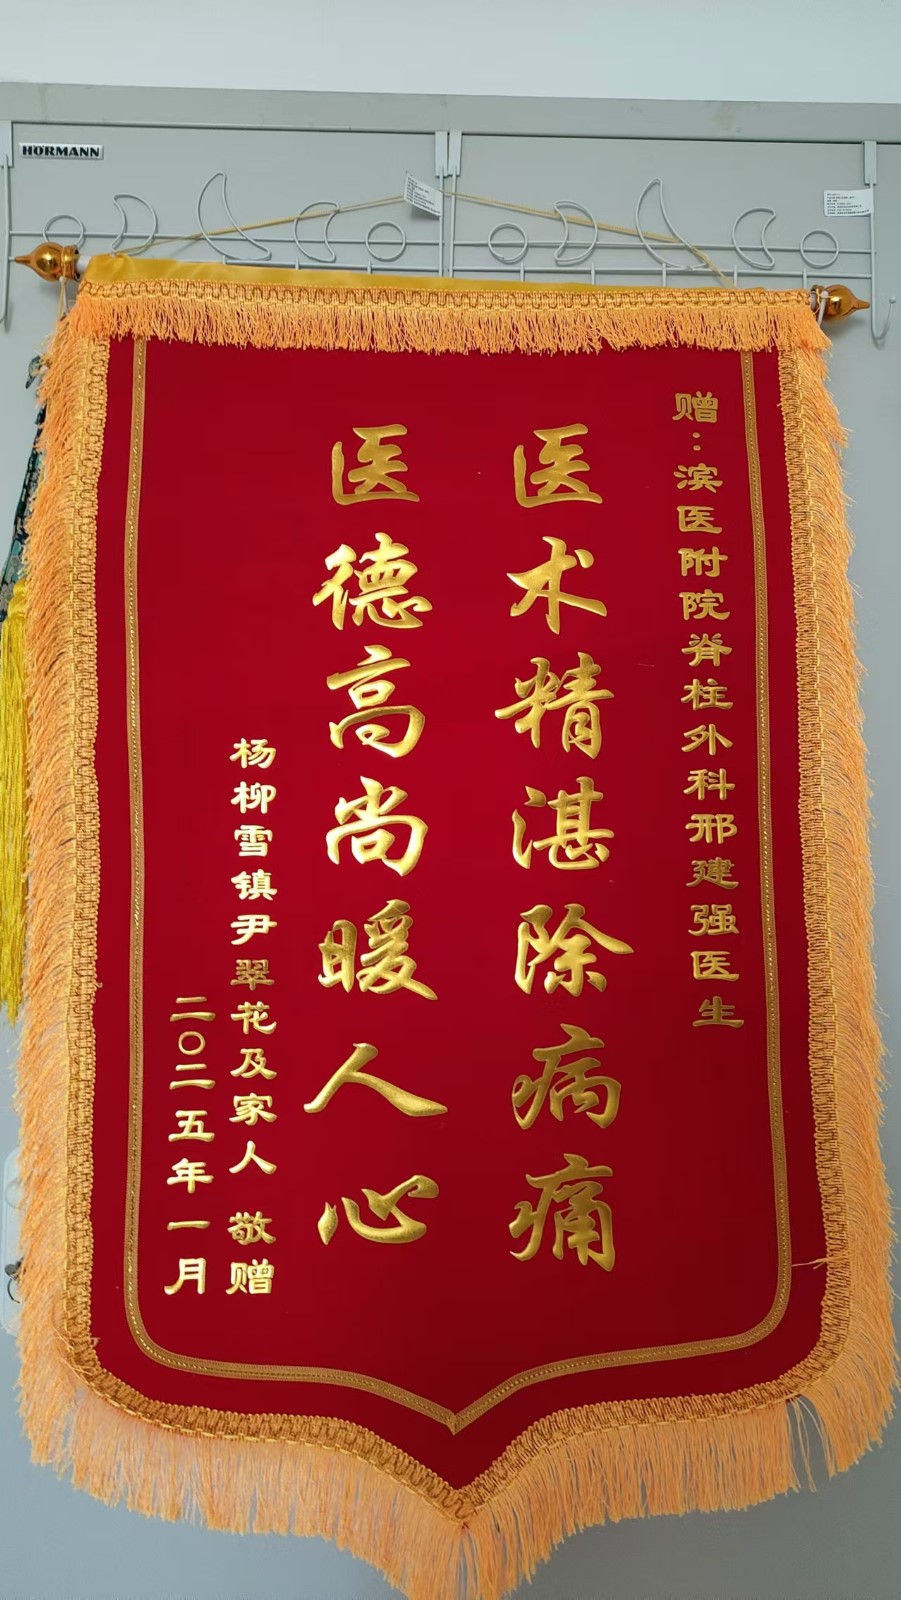 HÖRMANN
赠：滨医附院脊柱外科邢建强医生
医术精湛除病痛
医德高尚暖人心
杨柳雪镇尹翠花及家人 敬赠
二〇二五年一月